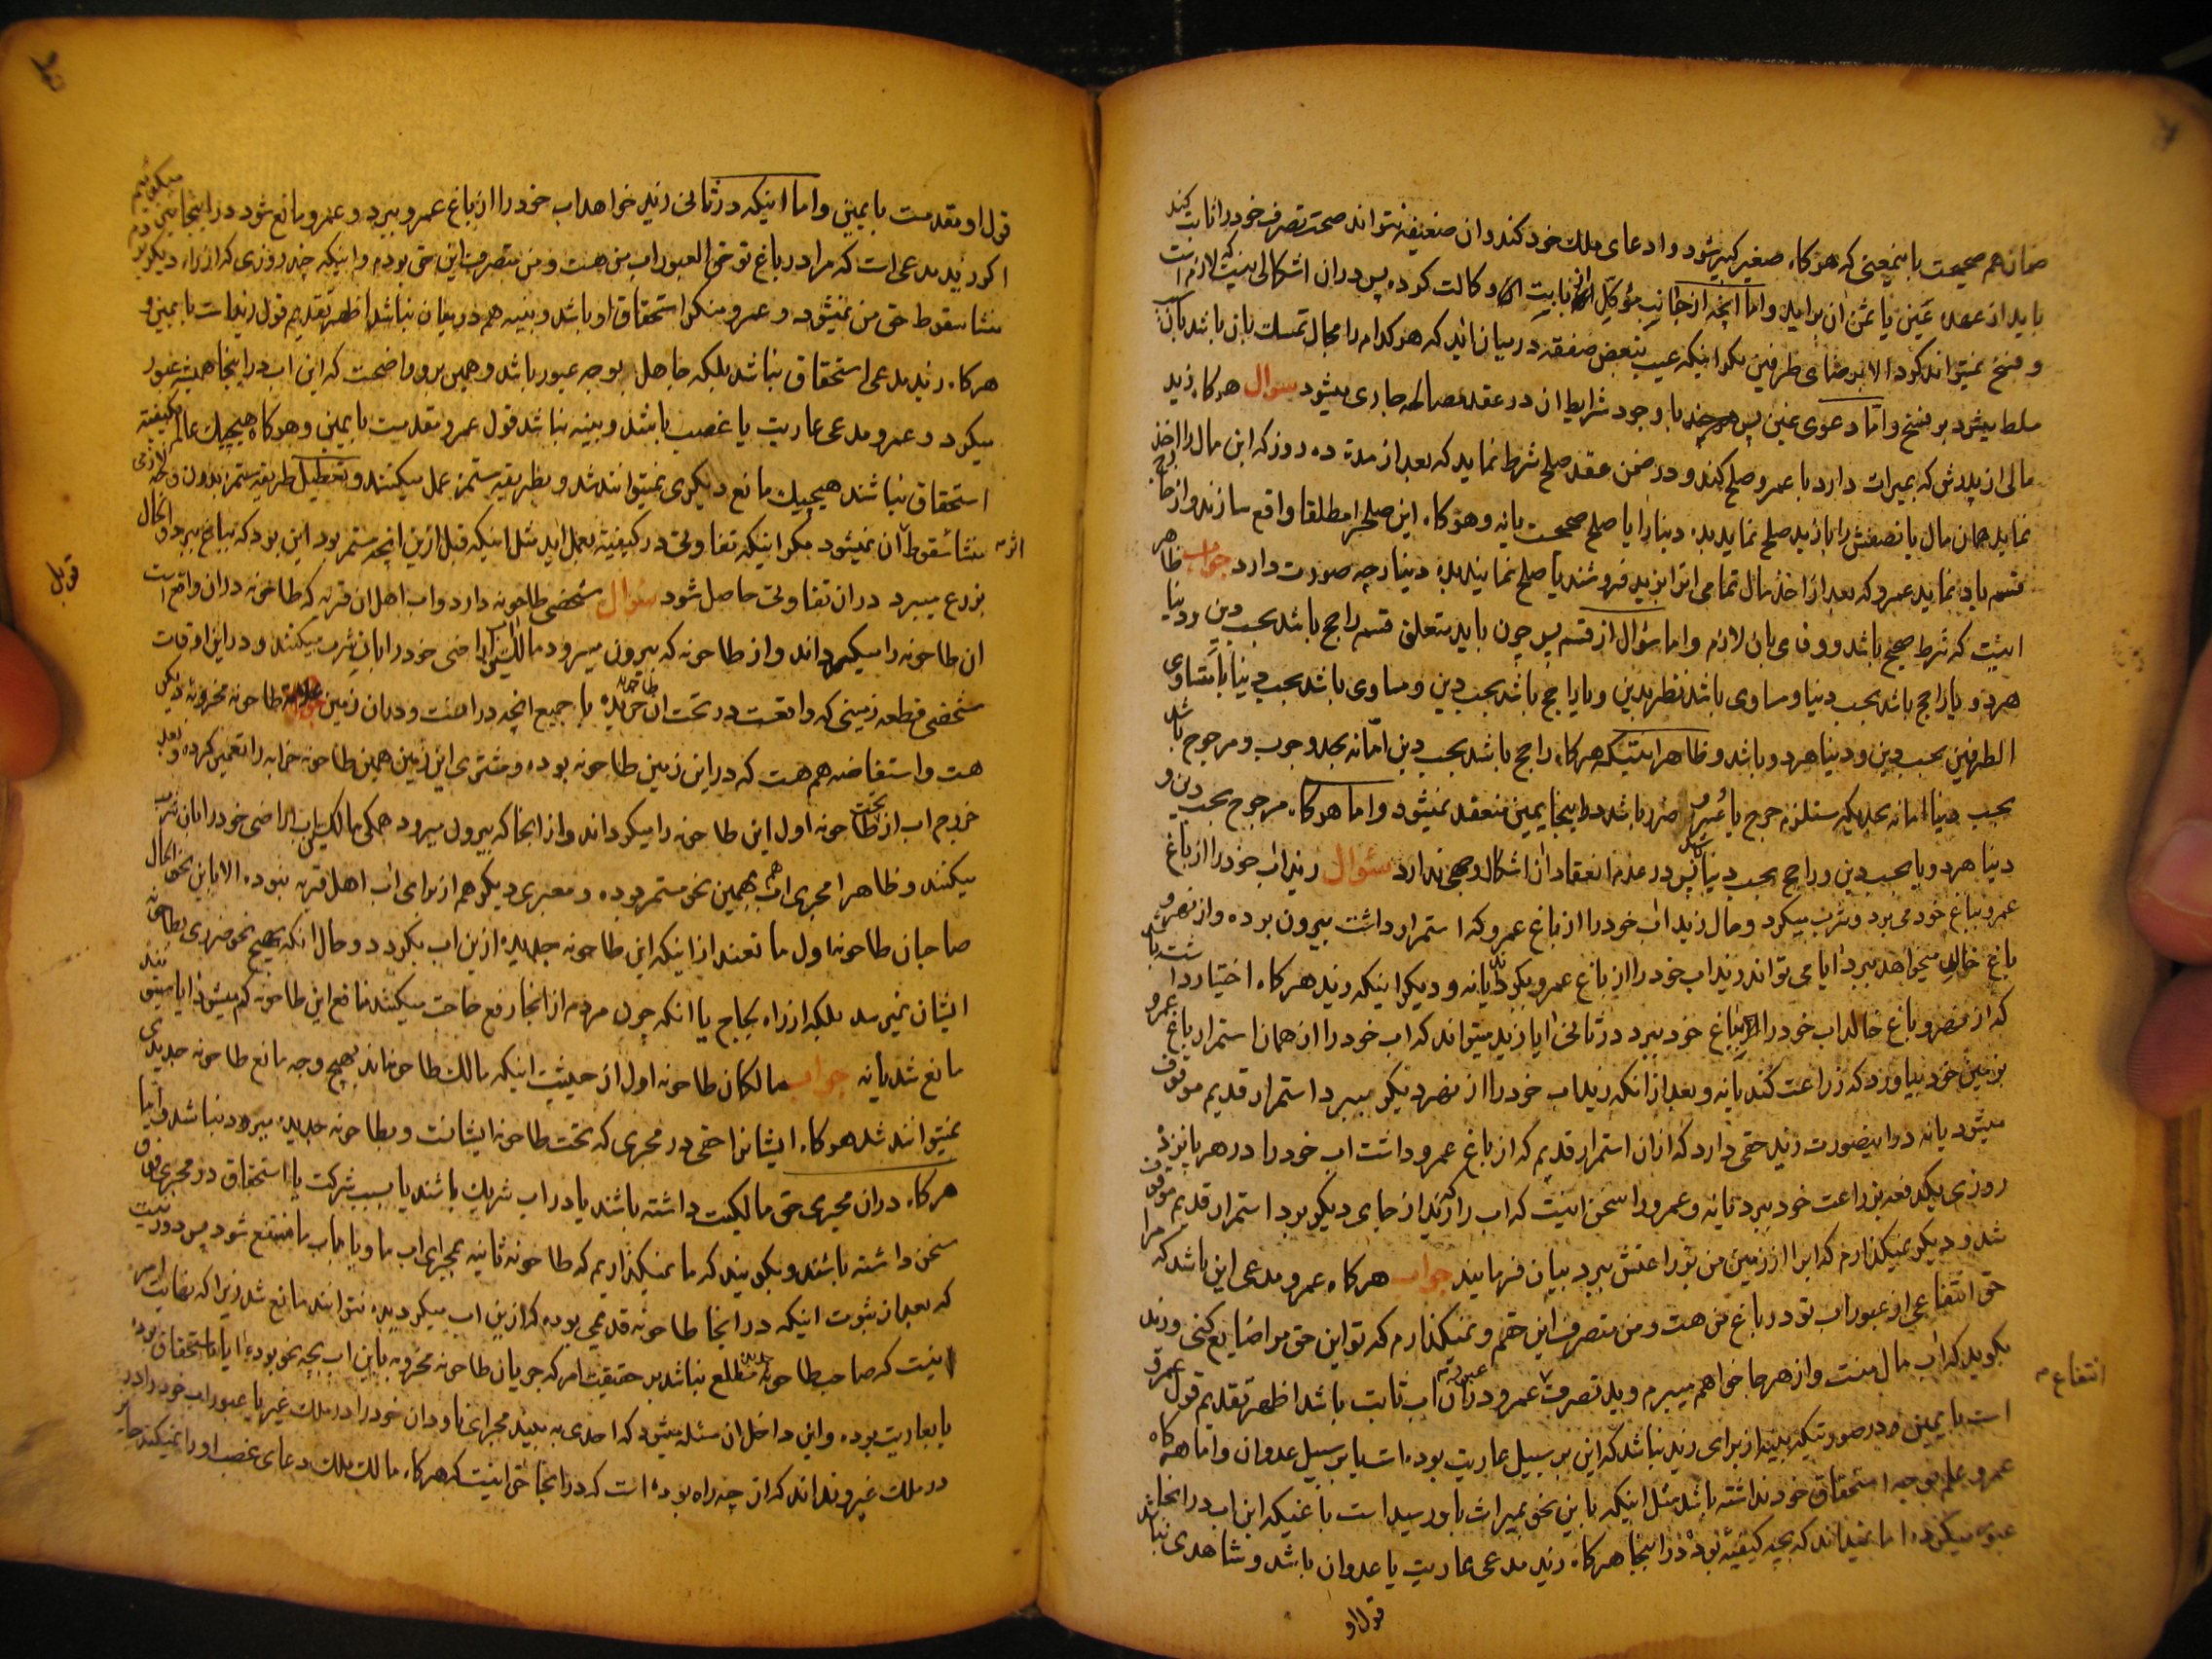 ضمان هم صحیحست باینمعنی که هرکاه صغیر کبیر شود و ادعای ملك خود کند و ان ضعیفه نتواند صحت تصرف خود را ثابت کند
باید از عهده عین یا ثمن ان براید و اما انچه از جانب موکل از بابت وکالت کرده پس دران اشکالی نیست که لازم است
و فسخ نمیتواند کرد الا برضای طرفین مکر اینکه عیب تبعض صفقه در میان اید که هرکدام را مجال تمسك بان باشد بان
مسلط میشود بر فسخ و اما دعوی غبن پس هرچند با وجود شرایط ان در عقد مصالحه جاری میشود سوال هرکاه زید
مالی از پدرش که بمیراث دارد با عمرو صلح کند و در ضمن عقد صلح شرط نماید که بعد از مدة ده روز که این مال را اخذ
نماید همان مال یا نصفش را بازید صلح نماید بده دینار ایا صلح صحیحست یا نه و هرکاه این صلح را مطلقا واقع سازند و از خارج
قسم یاد نماید عمرو که بعد از اخذ مال تمامی انرا بزید فروشند یا صلح نمایند بده دینار چه صورت دارد جواب ظاهر
اینست که شرط صحیح باشد و وفای بان لازم و اما سؤال از قسم پس چون باید متعلق قسم راجح باشد بحسب دین و دنیا
هردو یا راجح باشد بحسب دنیا و مساوی باشد نظر بدین و یا راجح باشد بحسب دین و مساوی باشد بحسب دنیا یا متساوی
الطرفین بحسب دین و دنیا هردو باشد و ظاهر اینستکه هرکاه راجح باشد بحسب دین اما نه بحد وجوب و مرجوح باشد
بحسب دنیا اما نه بحدیکه مستلزم حرج یا عسر و ضرر باشد در اینجا یمین منعقد نمیشود و اما هرکاه مرجوح بحسب دین و
دنیا هردو یا بحسب دین و راجح بحسب دنیا باشد پس در عدم انعقاد ان اشکالی وجهی ندارد سؤال زید اب خود را از باغ
عمرو بباغ خود می برد و شرب میکرد و حال زید اب خود را از باغ عمرو که استمرار داشت بیرون برده و از نهر و
باغ خالد میخواهد ببرد ایا می تواند زید اب خود را از باغ عمرو بکرداند یا نه و دیکر اینکه زید هرکاه اختیار داشت باشد
که از نهر و باغ خالد اب خود را بباغ خود ببرد در ثانی ایا زید میتواند که اب خود را از همان استمرار باغ عمرو
بزمین خود بیاورد که زراعت کند یا نه و بعد از انکه زید اب خود را از نهر دیکر میبرد استمرار قدیم موقوف
میشود یا نه و در اینصورت زید حقی دارد که ازان استمرار قدیم که از باغ عمرو داشت اب خود را در هر پانزده
روزی یکدفعه بزراعت خود ببرد یا نه و عمرو را سخن اینست که اب را که زید از جای دیکر برد استمرار قدیم موقوف
شد و دیکر نمیکذارم که ابرا از زمین من بزراعتش ببرد بیان فرمایند جواب هرکاه عمرو مدعی این باشد که مرا
حق انتفاعی از عبور اب تو در باغ من هست و من متصرف این حقم و نمیکذارم که تو این حق مرا ضایع کنی و زید
بکوید که اب مال منست و از هرجا خواهم میبرم و ید تصرف عمرو در ان اب ثابت باشد اظهر تقدیم قول عمرو
است با یمین در صورتیکه بینه از برای زید نباشد که این بر سبیل عاریت بوده است یا بر سبیل عدوان و اما هرکاه
عمرو علم بوجه استحقاق خود نداشته باشد مثل اینکه باین نحو بمیراث باو رسیده است یا غیر انکه این اب در اینجا
عبور میکرده اما نمیداند که بچه کیفیت بوده در اینجا هرکاه زید مدعی عاریت یا عدوان باشد و شاهدی نباشد
انتفاع
قول او
قول او مقدمست با یمین و اما اینکه در ثانی زید خواهد اب خود را از باغ عمرو ببرد و عمرو مانع شود در اینجا پس میکوئیم
اکر زید مدعی است که مرا در باغ تو حق العبور اب من هست و من متصرف این حق بودم و اینکه چند روزی که از راه دیکر بردم
منشا سقوط حق من نمیشود و عمرو منکر استحقاق او باشد و بینه هم در میان نباشد اظهر تقدیم قول زید است با یمین و
هرکاه زید مدعی استحقاق نباشد بلکه جاهل بوجه عبور باشد و همین بر او واضحست که این اب در اینجا همیشه عبور
میکرد و عمرو مدعی عاریت یا غصب باشد و بینه نباشد قول عمرو مقدمست با یمین و هرکاه هیچیك عالم بکیفیت
استحقاق نباشند هیچیك مانع دیکری نمیتوانند شد و بطریقه مستمره عمل میکنند و تعطیل طریقه مستمره بدون
منشا سقوط ان نمیشود مکر اینکه تفاوتی در کیفیت بعمل اید مثل اینکه قبل ازین انچه مستمر بود این بود که بباغ میبرد و الحال
بزرع میبرد و دران تفاوتی حاصل شود سؤال شخصی طاحونه دارد و اب اهل ان قریه که طاحونه دران واقع است
ان طاحونه را میکرداند و از طاحونه که بیرون میرود مالك اراضی خود را بان شرب میکنند و در این اوقات
شخصی قطعه زمینی که واقعست در تحت ان طاحونه خریده با جمیع انچه در انست و دران زمین علامت طاحونه مخروبه دیکر
هست و استفاضه هم هست که در این زمین طاحونه بوده و مشتری این زمین همین طاحونه خرابه را تعمیر کرده و بعد
خروج اب از تحت طاحونه اول این طاحونه را میکرداند و از انجا که بیرون میرود همکی مالك اراضی خود را بان شرب
میکنند و ظاهرا مجری اب بهمین نحو مستمر بوده و معبری دیکر هم از برای اب اهل قریه نبوده الا باین نحو الحال
صاحبان طاحونه اول مانعند از اینکه این طاحونه جدیده ازین اب بکردد و حال انکه بهیچ نحو ضرری بطاحونه
ایشان نمیرسد بلکه از راه لجاج یا انکه چون مردم از انجا رفع حاجت میکنند نافع این طاحونه کم میشود ایا میتوانند
مانع شد یا نه جواب مالکان طاحونه اول از حیثیت اینکه مالك طاحونه اند بهیچ وجه مانع طاحونه جدیده
نمیتوانند شد هرکاه ایشانرا حقی در مجری که تحت طاحونه ایشانست و بطاحونه جدیده میرود نباشد و اما
هرکاه دران مجری حق مالکیت داشته باشند یا در اب شریك باشند یا بسبب شرکت یا استحقاق در مجری فوق
سخن داشته باشند و بکویند که ما نمیکذاریم که طاحونه ثانیه بمجرای اب ما و یا باب ما منتفع شود پس دور نیست
که بعد از ثبوت اینکه در انجا طاحونه قدیمی بوده که ازین اب میکردیده نتوانند مانع شد زیرا که نهایت امر
اینست که صاحب طاحونه جدیده مطلع نباشد بر حقیقت امر که جریان طاحونه مخروبه باین اب بچه نحو بوده ایا باستحقاق بوده
یا بعاریت بوده و این داخل ان مسئله میشود که احدی به بیند مجرای ناودان خود را در ملك غیر یا عبور اب خود را در
در ملك غیر و نداند که از چه راه بوده است که در انجا حق اینست که هرکاه مالك ملك دعای غصب او را نمیکند جایز